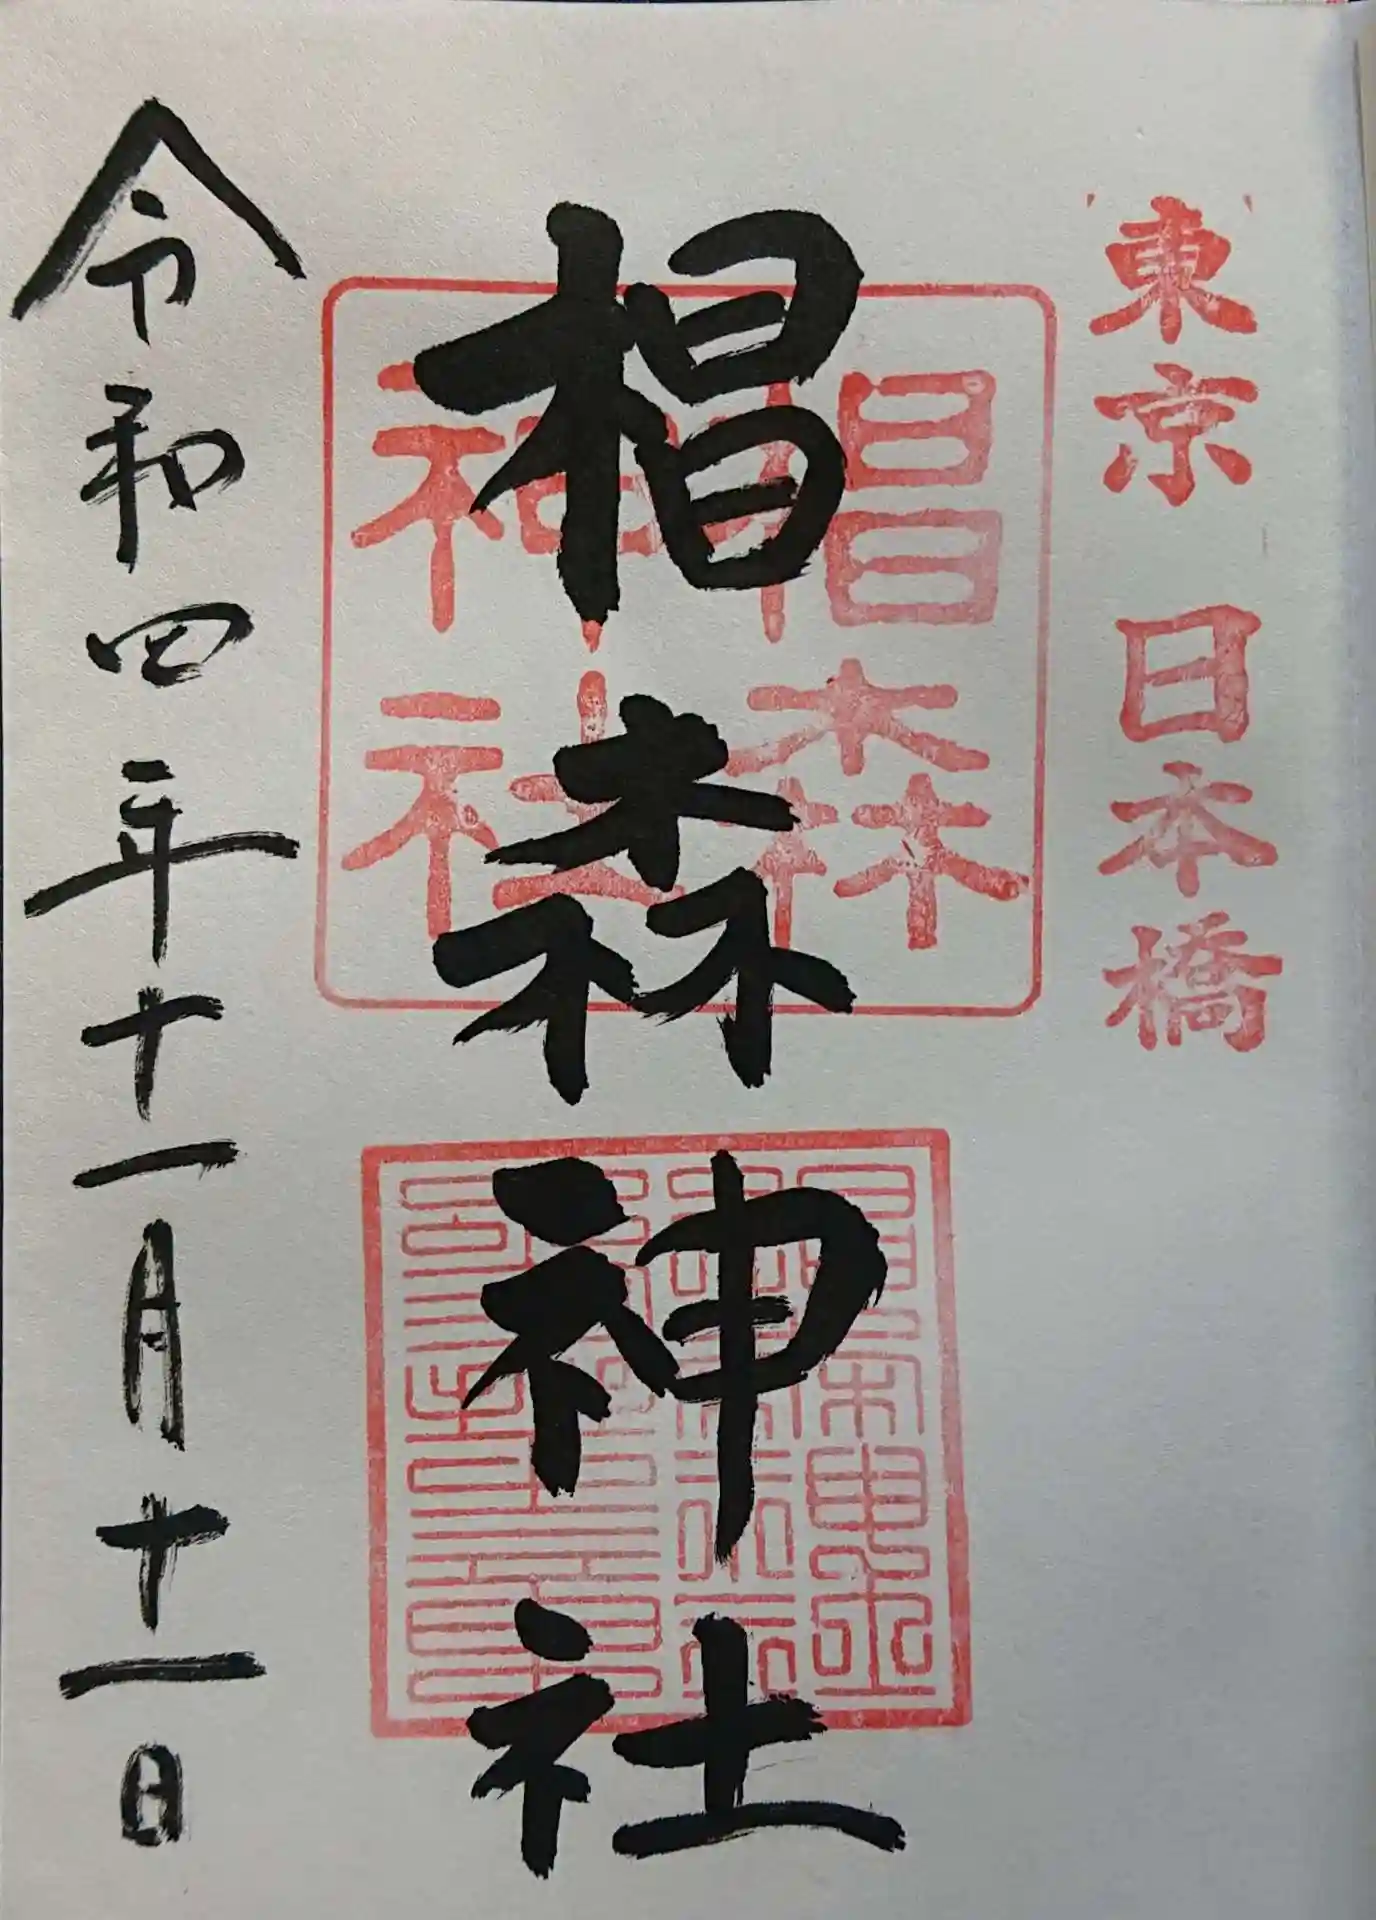 東京 日本橋
椙森神社
椙森神社
令和四年十一月十一日